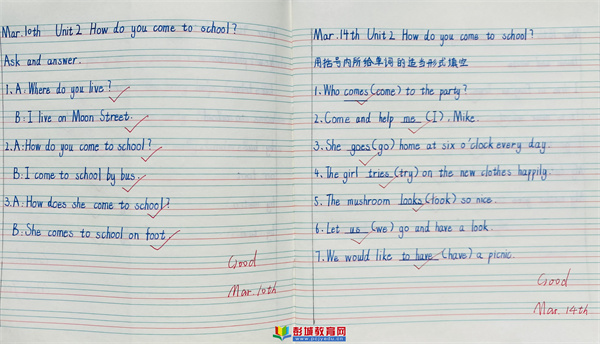 Mar.10th Unit 2 How do you come to school?
Ask and answer.
1. A: Where do you live?
B: I live on Moon Street.
2. A: How do you come to school?
B: I come to school by bus.
3. A: How does she come to school?
B: She comes to school on foot.
Good
Mar. 10th
Mar.14th Unit 2 How do you come to school?
用括号内所给单词的适当形式填空
1. Who comes (come) to the party?
2. Come and help me (I), Mike.
3. She goes (go) home at six o'clock every day.
4. The girl tries (try) on the new clothes happily.
5. The mushroom looks (look) so nice.
6. Let us (we) go and have a look.
7. We would like to have (have) a picnic.
Good
Mar. 14th
彭城教育网
www.pcjyedu.cn